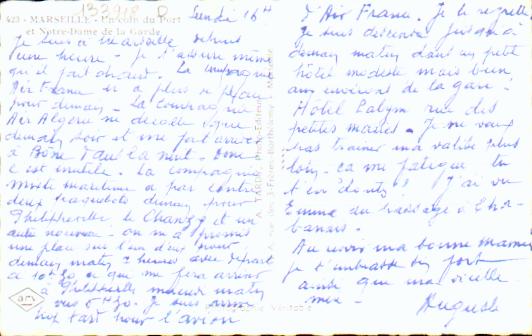 133918
423 - MARSEILLE - Un coin du Port
et Notre-Dame de la Garde
Lundi 16h
Je suis à Marseille depuis
une heure - Je t'assure même
qu'il fait chaud. La compagnie
Air France n'a plus de place
pour demain - La compagnie
Air Algérie ne décolle que
demain soir et me fait arriver
à Bône dans la nuit - donc
c'est inutile. La compagnie
mixte maritime a par contre
deux paquebots demain pour
Philippeville le Chanzy et un
autre nouveau - on m'a promis
une place sur l'un d'eux pour
demain matin 7 heures avec départ
à 10h30 ce qui me fera arriver
à Philippeville mercredi matin
vers 8h30. Je suis arrivé
trop tard pour l'avion
d'Air France. Je le regrette
je suis descendu jusqu'à
demain matin dans un petit
hôtel modeste mais bien,
aux environs de la gare -
Hôtel rue des
petites Maries - Je ne veux
pas trainer ma valise plus
loin - ça me fatigue tu
t'en doutes ! J'ai vu
Emma au passage à
Au revoir ma bonne maman
je t'embrasse bien fort
ainsi que ma vieille
mie -
Auguste